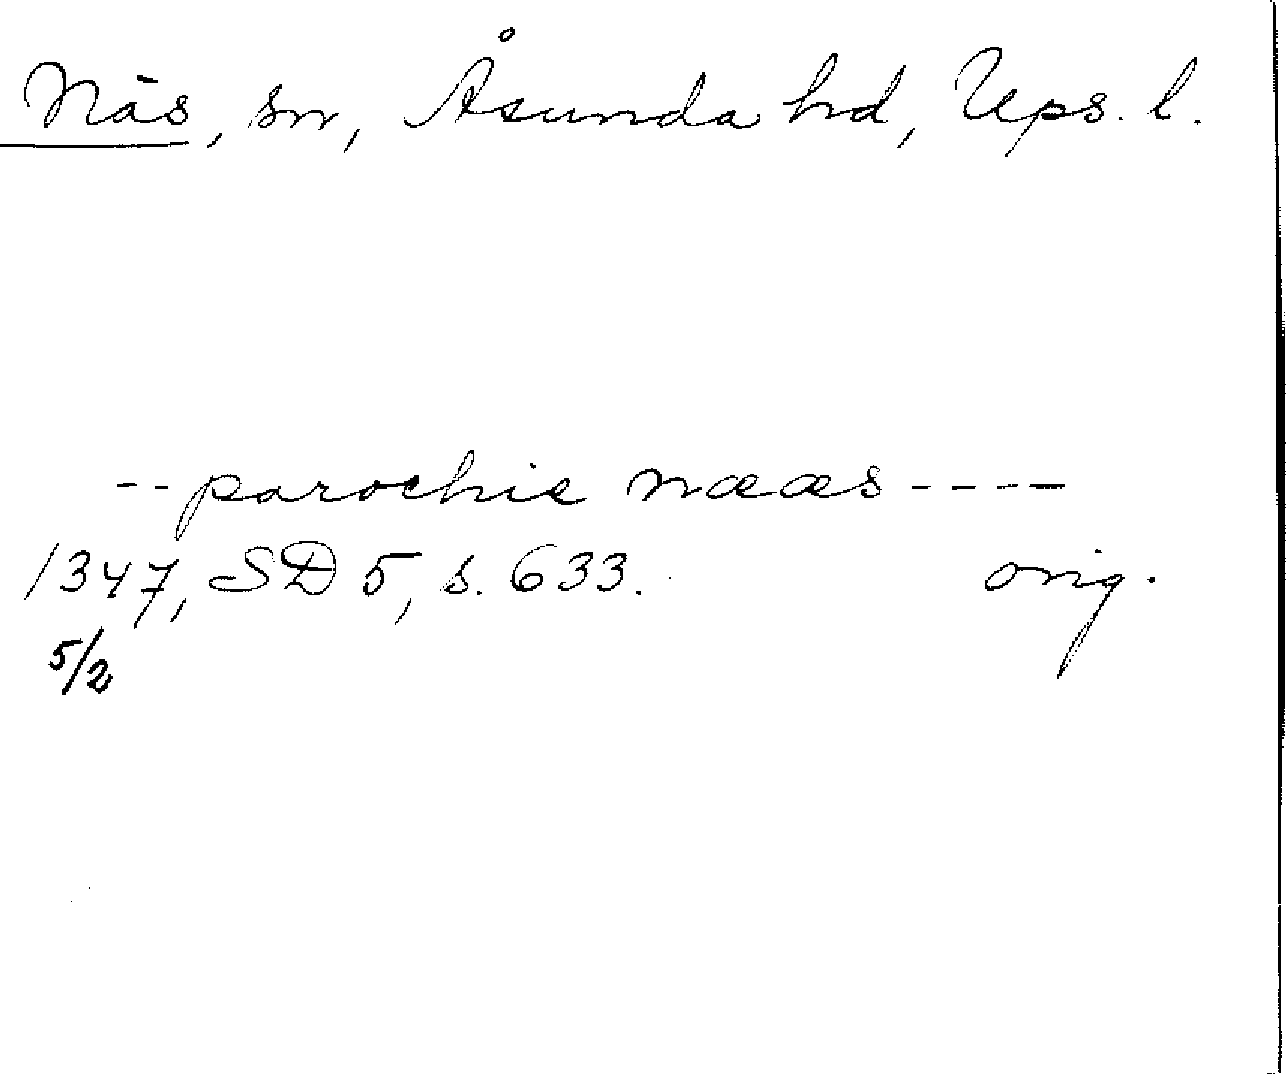 Näs, sn, Åsunda hd, Ups. l.
-- parochie nææs ----
1347, SD 5, s. 633. orig.
5/2